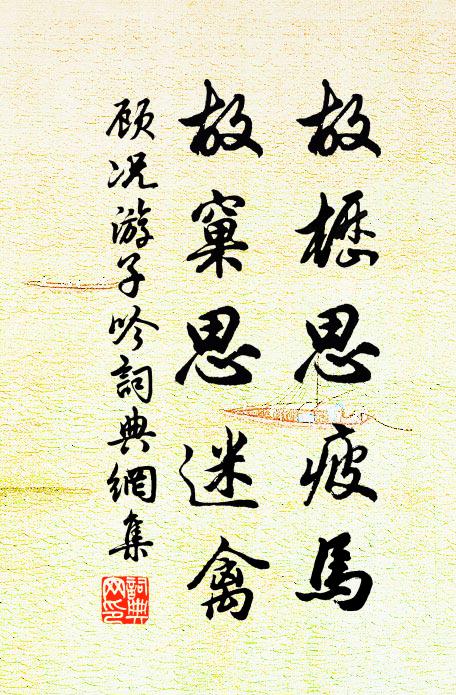 故櫪思疲馬
故窠思迷禽
顾况游子吟詞典網集
詞典网印